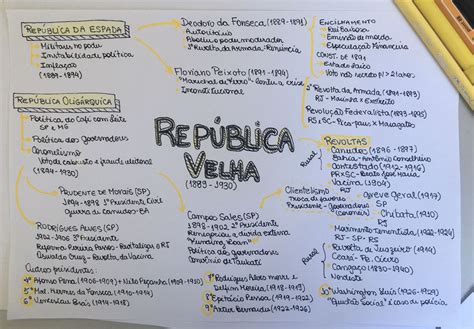 REPÚBLICA DA ESPADA
• Militares no poder
• Instabilidade política
• Inflação
(1889-1894)
Deodoro da Fonseca (1889-1891)
• Autoritário
• Aboliu o poder moderador
• 1ª Revolta da Armada - Renúncia
Floriano Peixoto (1891-1894)
• "Marechal de Ferro"
• Inconstitucional
ENCILHAMENTO
• Rui Barbosa
• Emissão de moeda
• Especulação Financeira
CONST. DE 1891
• Estado laico
• Voto não secreto
2ª Revolta da Armada (1891-1894)
RJ - Marinha x Exército
Revolução Federalista (1893-1895)
RS e SC - Pica-paus x Maragatos
REPÚBLICA OLIGÁRQUICA
• Política do Café com leite
SP e MG
• Política dos Governadores
• Coronelismo
Voto de cabresto e fraude eleitoral
(1894-1930)
REPÚBLICA
VELHA
(1889-1930)
REVOLTAS
Rural
Canudos (1896-1897)
Bahia - Antônio Conselheiro
Contestado (1912-1916)
PR x SC - Beato José Maria
Vacina (1904)
Prudente de Morais (SP)
1894-1898 1º Presidente Civil
Guerra de Canudos - BA
Rodrigues Alves (SP)
1902-1906 3º Presidente
Reforma Pereira Passos - Revitaliza o RJ
Oswaldo Cruz - Revolta da Vacina
Outros presidentes:
4º Afonso Pena (1906-1909) e Nilo Peçanha (1909-1910)
5º Mal. Hermes da Fonseca (1910-1914)
6º Venceslau Brás (1914-1918)
Campos Sales (SP)
1898-1902 2º Presidente
Renegociou a dívida externa
"Funding Loan"
Política dos governadores
Convênio de Taubaté
7º Rodrigues Alves morre e
Delfim Moreira (1918-1919)
8º Epitácio Pessoa (1919-1922)
9º Artur Bernardes (1922-1926)
Clientelismo
Troca de favores
Presidente - governadores (SP)
(coronéis)
Greve Geral (1917)
SP
Chibata (1910)
RJ
Movimento Tenentista (1922-1924)
RJ - SP - RS
Rural
Revolta de Juazeiro (1914)
Ceará - Pe. Cícero
Cangaço (1830-1940)
Nordeste
10º Washington Luís (1926-1930)
"Questão Social" é caso de polícia